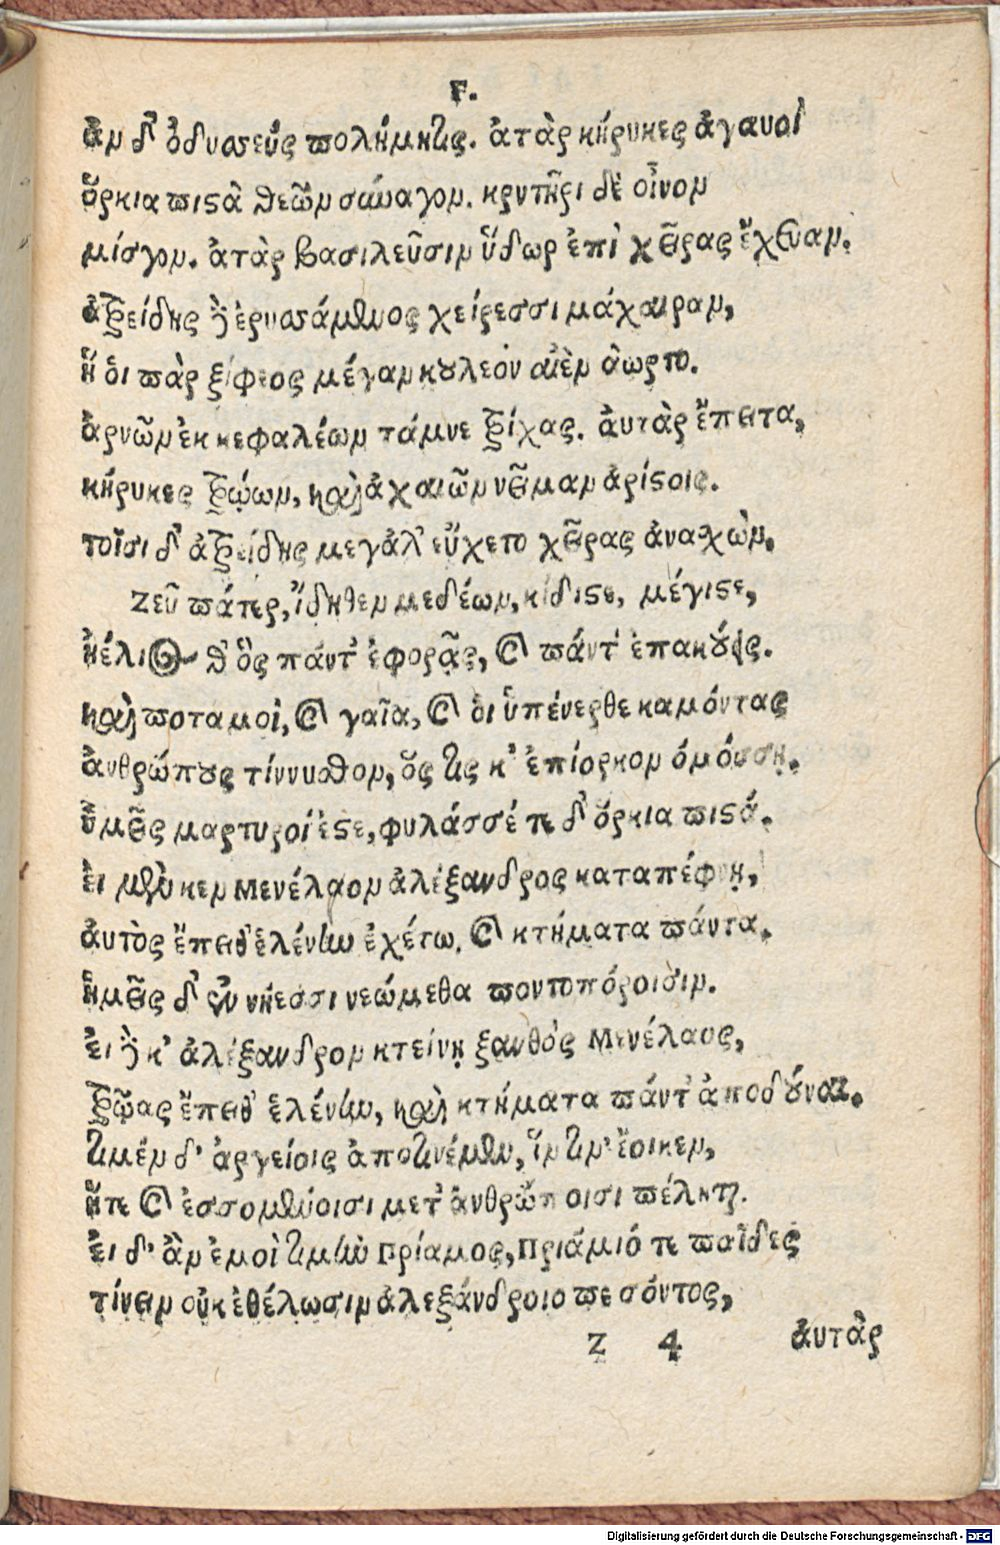 Γ.
ἂμ δ' ὀδυσσεὺς πολύμητις. ἀτὰρ κήρυκες ἀγαυοὶ
ὅρκια πιστὰ θεῶμ σύναγομ. κρητῆρι δὲ οἶνομ
μίσγομ. ἀτὰρ βασιλεῦσιμ ὕδωρ ἐπὶ χεῖρας ἔχευαμ.
ἀτρείδης δὲ ἐρυσσάμενος χείρεσσι μάχαιραμ,
ἥ ὁι πὰρ ξίφεος μέγαμ κουλεὸν αἰὲμ ἄωρτο.
ἀρνῶμ ἐκ κεφαλέωμ τάμνε τρίχας. ἀυτὰρ ἔπειτα,
κήρυκες τρώωμ, καὶ ἀχαιῶμ νεῖμαμ ἀρίστοις.
τοῖσι δ' ἀτρείδης μεγάλ' εὔχετο χεῖρας ἀνασχώμ.
Ζεῦ πάτερ, ἴδηθεμ μεδέωμ, κύδιστε, μέγιστε,
ἠέλιος θ' ὃς πάντ' ἐφορᾷς, καὶ πάντ' ἐπακούεις.
καὶ ποταμοὶ, καὶ γαῖα, καὶ ὁι ὑπένερθε καμόντας
ἀνθρώπους τίννυσθομ, ὅς τις κ' ἐπίορκομ ὀμόσσῃ.
ὑμεῖς μαρτυροί ἐστε, φυλάσσέ τε δ' ὅρκια πιστά.
ἐι μὲν κεμ Μενέλαομ ἀλέξανδρος καταπέφνῃ,
ἀυτὸς ἔπειθ' ἑλένην ἐχέτω, καὶ κτήματα πάντα.
ἡμεῖς δ' ἐν νήεσσι νεώμεθα ποντοπόροισιμ.
ἐι δὲ κ' ἀλέξανδρομ κτείνῃ ξανθὸς Μενέλαος,
τρῶας ἔπειθ' ἑλένην, καὶ κτήματα πάντ' ἀποδοῦναι.
τιμὴμ δ' ἀργείοις ἀποτινέμεν, ἥμ τιμ' ἔοικεμ,
ἥτε καὶ ἐσσομένοισι μετ' ἀνθρώποισι πέληται.
ἐι δ' ἂμ ἐμοὶ τιμὴν Πρίαμος, Πριάμιό τε παῖδες
τίνειμ οὐκ ἐθέλωσιμ ἀλεξάνδροιο πεσόντος,
Z 4 ἀυτὰρ
Digitalisierung gefördert durch die Deutsche Forschungsgemeinschaft - DFG